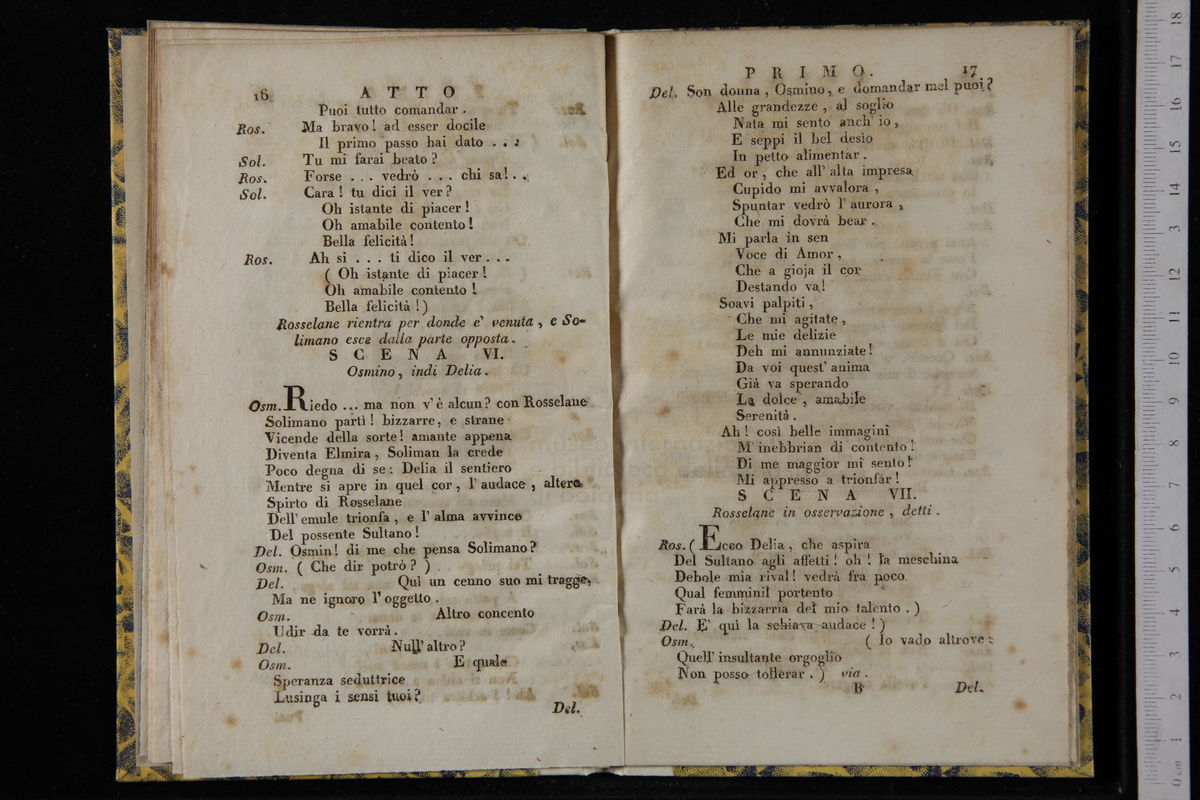 16 ATTO
Puoi tutto comandar .
Ros. Ma bravo! ad esser docile
Il primo passo hai dato . . :
Sol. Tu mi farai beato ?
Ros. Forse . . . vedrò . . . chi sa! . .
Sol. Cara ! tu dici il ver ?
Oh istante di piacer !
Oh amabile contento !
Bella felicità!
Ros. Ah si . . . ti dico il ver . . .
( Oh istante di piacer !
Oh amabile contento !
Bella felicità !)
Rosselane rientra per donde e' venuta , e So-
limano esce dalla parte opposta .
SCENA VI.
Osmino, indi Delia .
Osm. Riedo ... ma non v'è alcun? con Rosselane
Solimano partì ! bizzarre, e strane
Vicende della sorte! amante appena
Diventa Elmira, Soliman la crede
Poco degna di se : Delia il sentiero
Mentre si apre in quel cor, l'audace , altero
Spirto di Rosselane
Dell'emule trionfa , e l'alma avvince
Del possente Sultano !
Del. Osmin! di me che pensa Solimano?
Osm. ( Che dir potrò ? )
Del. Quì un cenno suo mi tragge,
Ma ne ignoro l'oggetto .
Osm. Altro concento
Udir da te vorrà .
Del. Null'altro ?
Osm. E quale
Speranza seduttrice
Lusinga i sensi tuoi?
Del.
PRIMO. 17
Del. Son donna , Osmino, e domandar mel puoi?
Alle grandezze , al soglio
Nata mi sento anch' io ,
E seppi il bel desìo
In petto alimentar .
Ed or , che all' alta impresa
Cupido mi avvalora ,
Spuntar vedrò l'aurora ,
Che mi dovrà bear .
Mi parla in sen
Voce di Amor ,
Che a gioja il cor
Destando va!
Soavi palpiti ,
Che mi agitate ,
Le mie delizie
Deh mi annunziate !
Da voi quest' anima
Già va sperando
La dolce , amabile
Serenità .
Ah ! così belle immagini
M' inebbrian di contento !
Di me maggior mi sento !
Mi appresso a trionfar !
SCENA VII.
Rosselane in osservazione , detti .
Ros. ( Ecco Delia , che aspira
Del Sultano agli affetti ! oh ! la meschina
Debole mia rival! vedrà fra poco
Qual femminil portento
Farà la bizzarria del mio talento . )
Del. E' quì la schiava audace ! )
Osm. ( Io vado altrove :
Quell' insultante orgoglio
Non posso tollerar . ) via .
B Del.